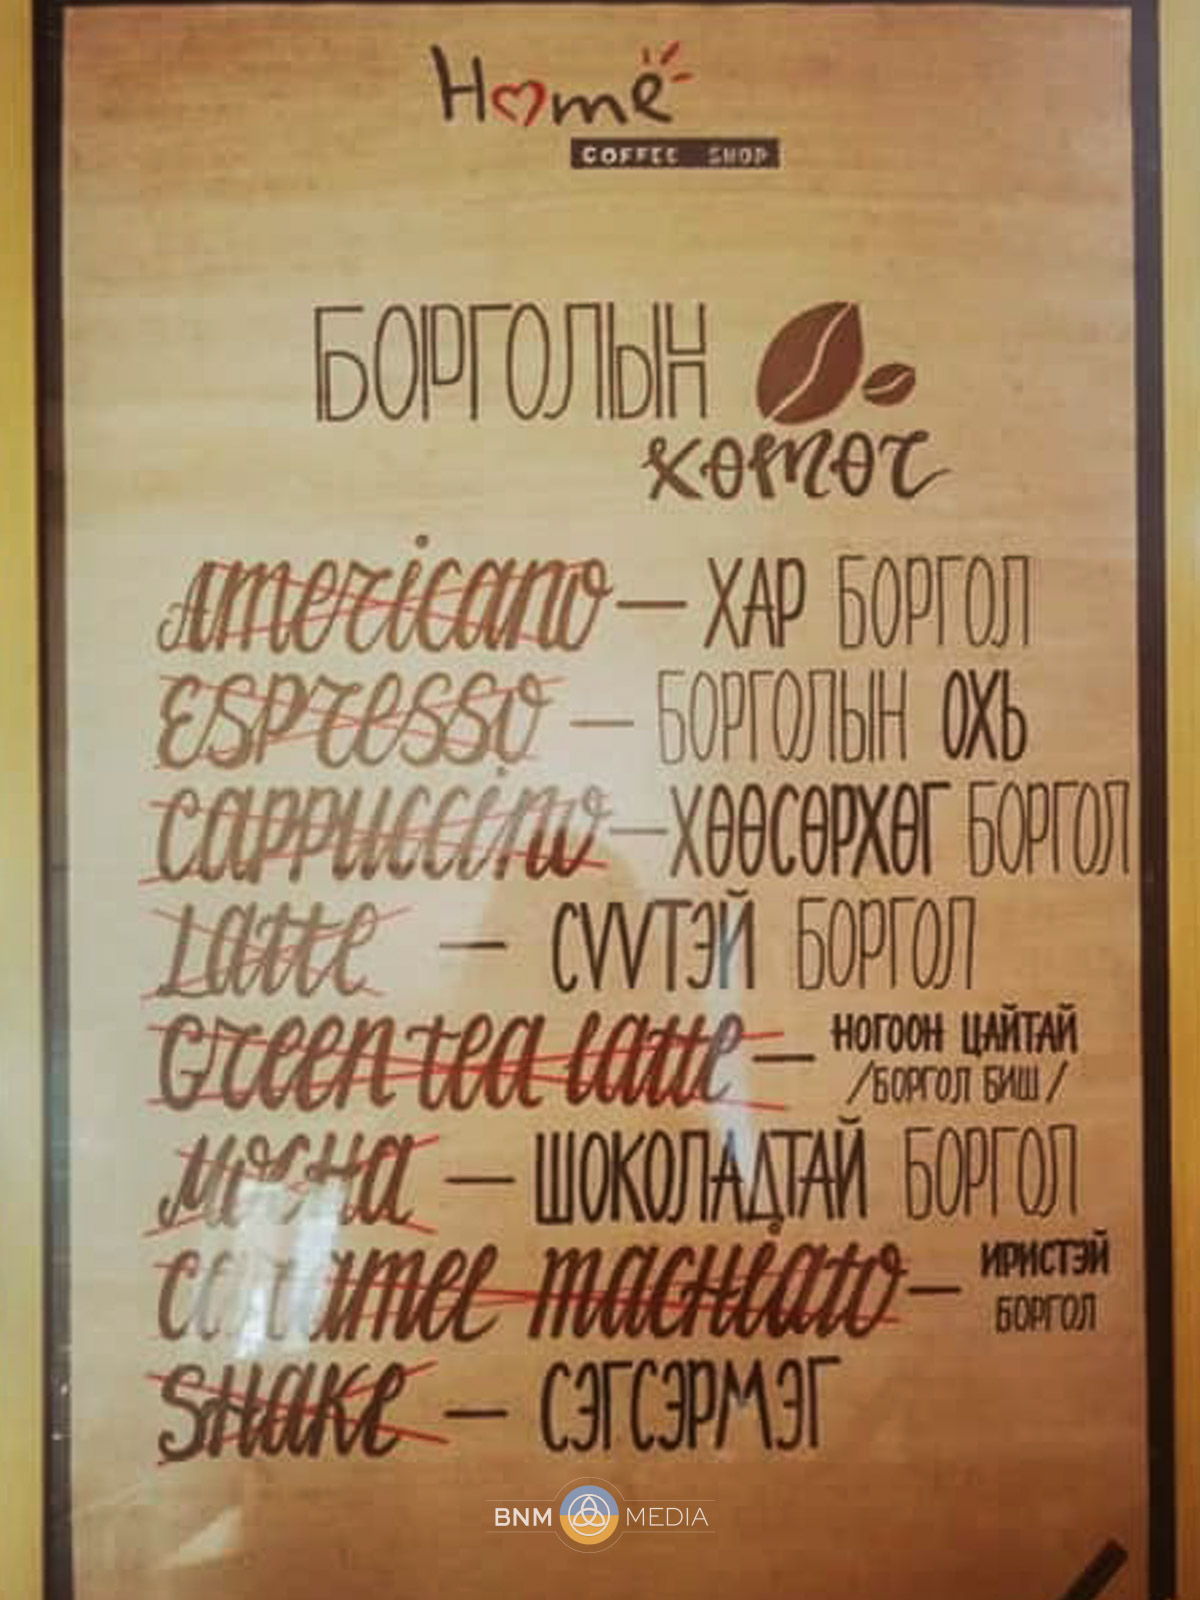 Home
COFFEE SHOP
БОРГОЛЫН
хөтөч
Americano — ХАР БОРГОЛ
Espresso — БОРГОЛЫН ОХЬ
Cappuccino — ХӨӨСӨРХӨГ БОРГОЛ
Latte — СҮҮТЭЙ БОРГОЛ
Green tea latte — НОГООН ЦАЙТАЙ
/БОРГОЛ БИШ/
Mocha — ШОКОЛАДТАЙ БОРГОЛ
Caramel machiato — ИРИСТЭЙ
БОРГОЛ
Shake — СЭГСЭРМЭГ
BNM MEDIA